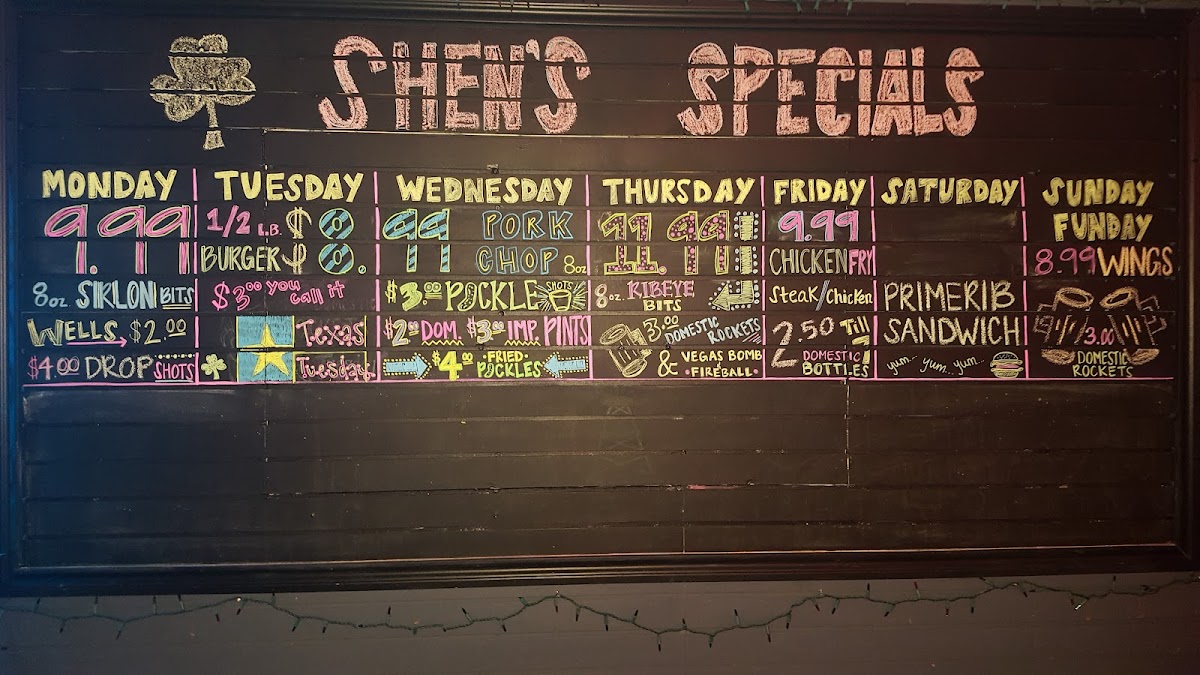 SHEN'S SPECIALS
MONDAY
9.99
8oz SIRLOIN BITS
WELLS $2.00
$4.00 DROP SHOTS
TUESDAY
1/2 LB. $8.
BURGER
$3.00 you call it
Texas
Tuesday
WEDNESDAY
99 PORK
CHOP 8oz
$3.00 PICKLE SHOTS
$2.00 DOM. $3.00 IMP. PINTS
$4.00 FRIED PICKLES
THURSDAY
11.99
8oz RIBEYE BITS
3.00 DOMESTIC ROCKETS
& VEGAS BOMB
FIREBALL
FRIDAY
9.99
CHICKEN FRY
Steak/Chicken
2.50 Till 2
DOMESTIC BOTTLES
SATURDAY
PRIMERIB
SANDWICH
yum.. yum.. yum..
SUNDAY
FUNDAY
8.99 WINGS
3.00
DOMESTIC
ROCKETS